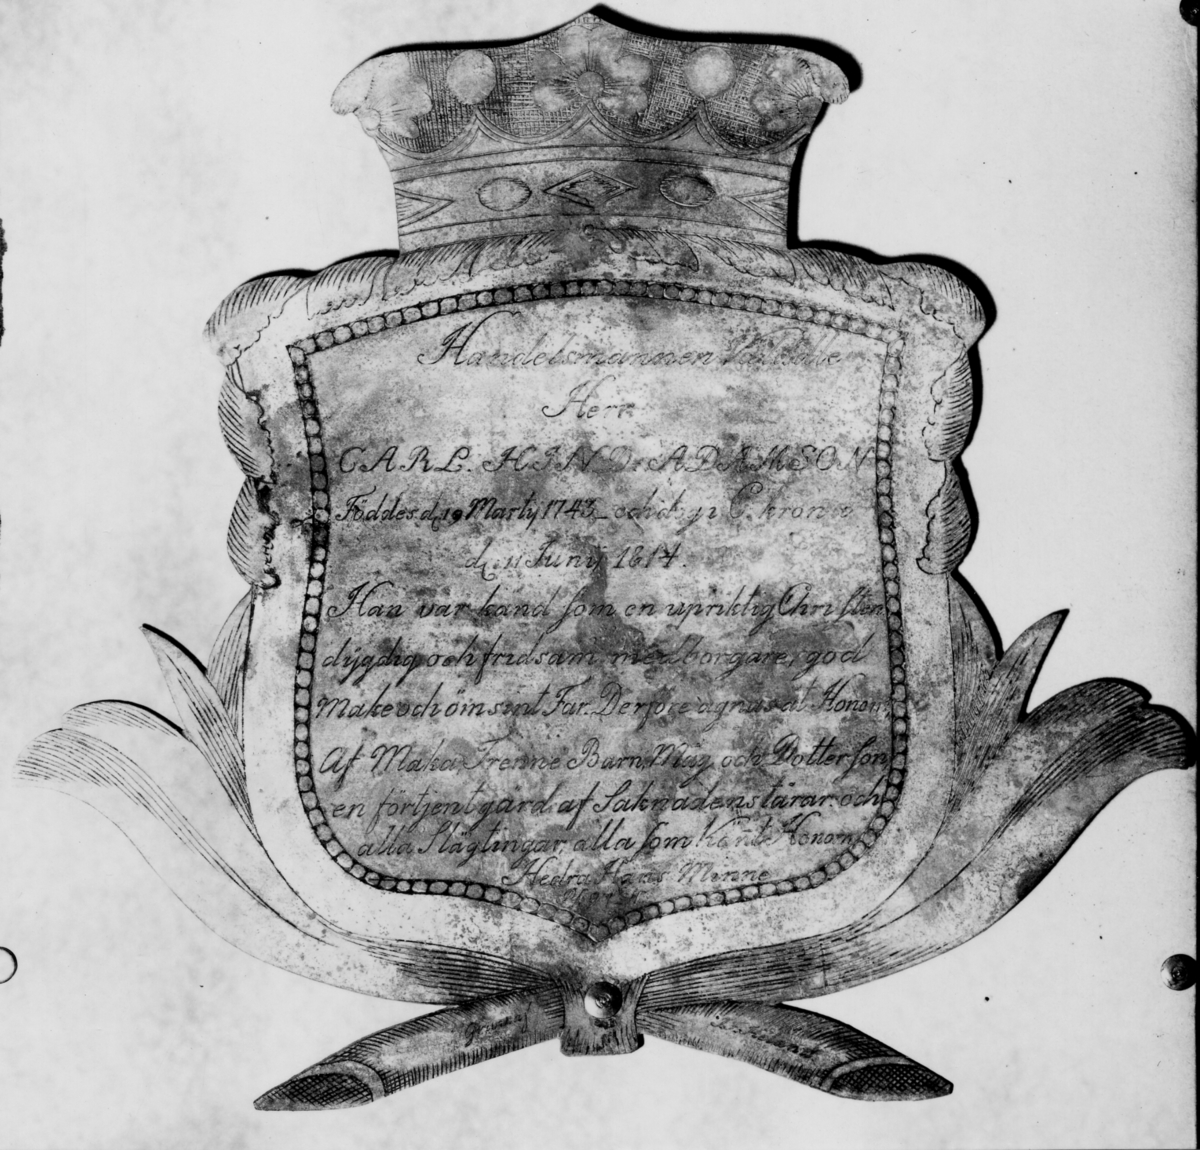 Handelsmannen
Herr
CARL. HIND. ADAMSON
Föddes d. 19 Martij 1743 och dog i C. krona
d. 11 Junij 1814.
Han var känd som en upriktig Christen
dygdig och fridsam medborgare, god
Make och ömsint Far. Derföre ägnas at Honom
Af Maka, Trenne Barn, Måg och Dotter son
en förtjent gärd af Saknadens tårar och
alla Slägtingar, alla som känt Honom
Hedra Hans Minne